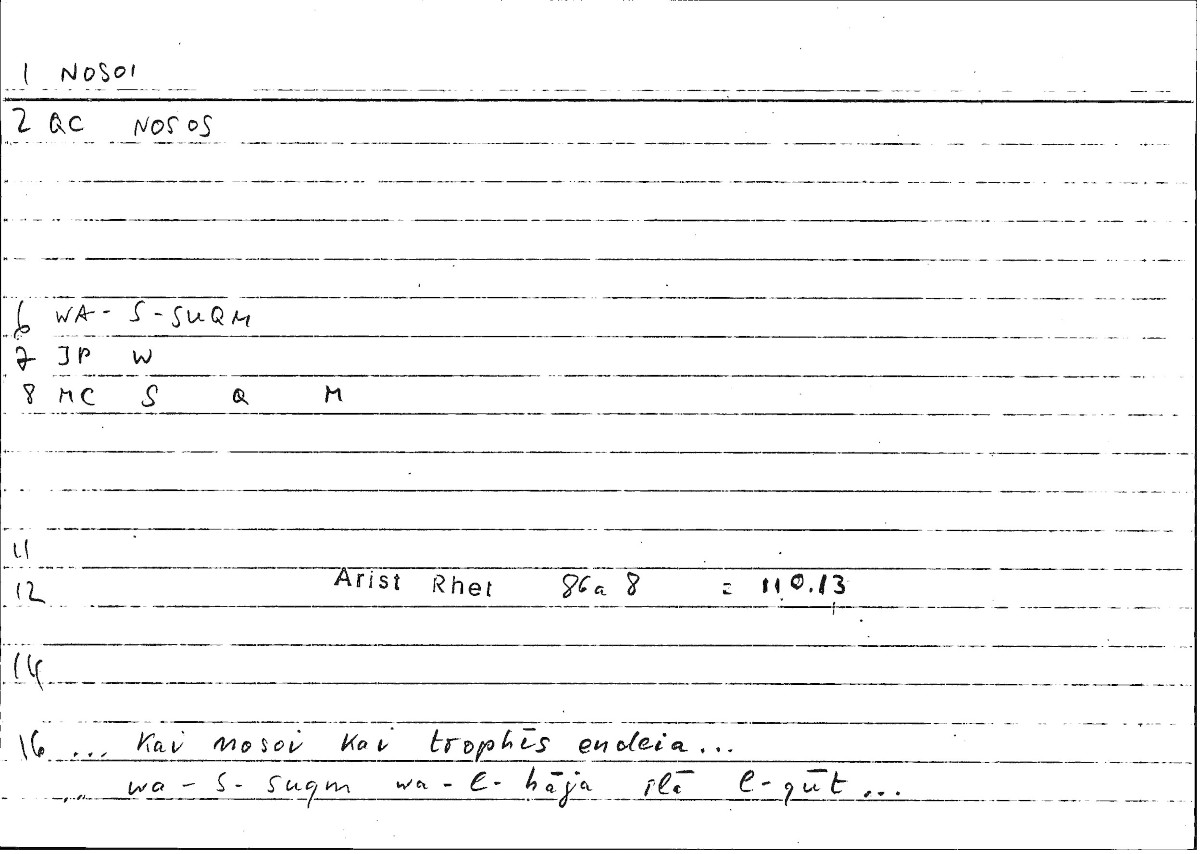 1 NOSOI
2 QC NOSOS
6 WA-S-SUQM
7 JP W
8 MC S Q M
11
12 Arist Rhet 86a8 = 110.13
14
16 ... kai nosoi kai trophēs endeia...
... wa-s-suqm wa-l-hāja ilā l-qūt...